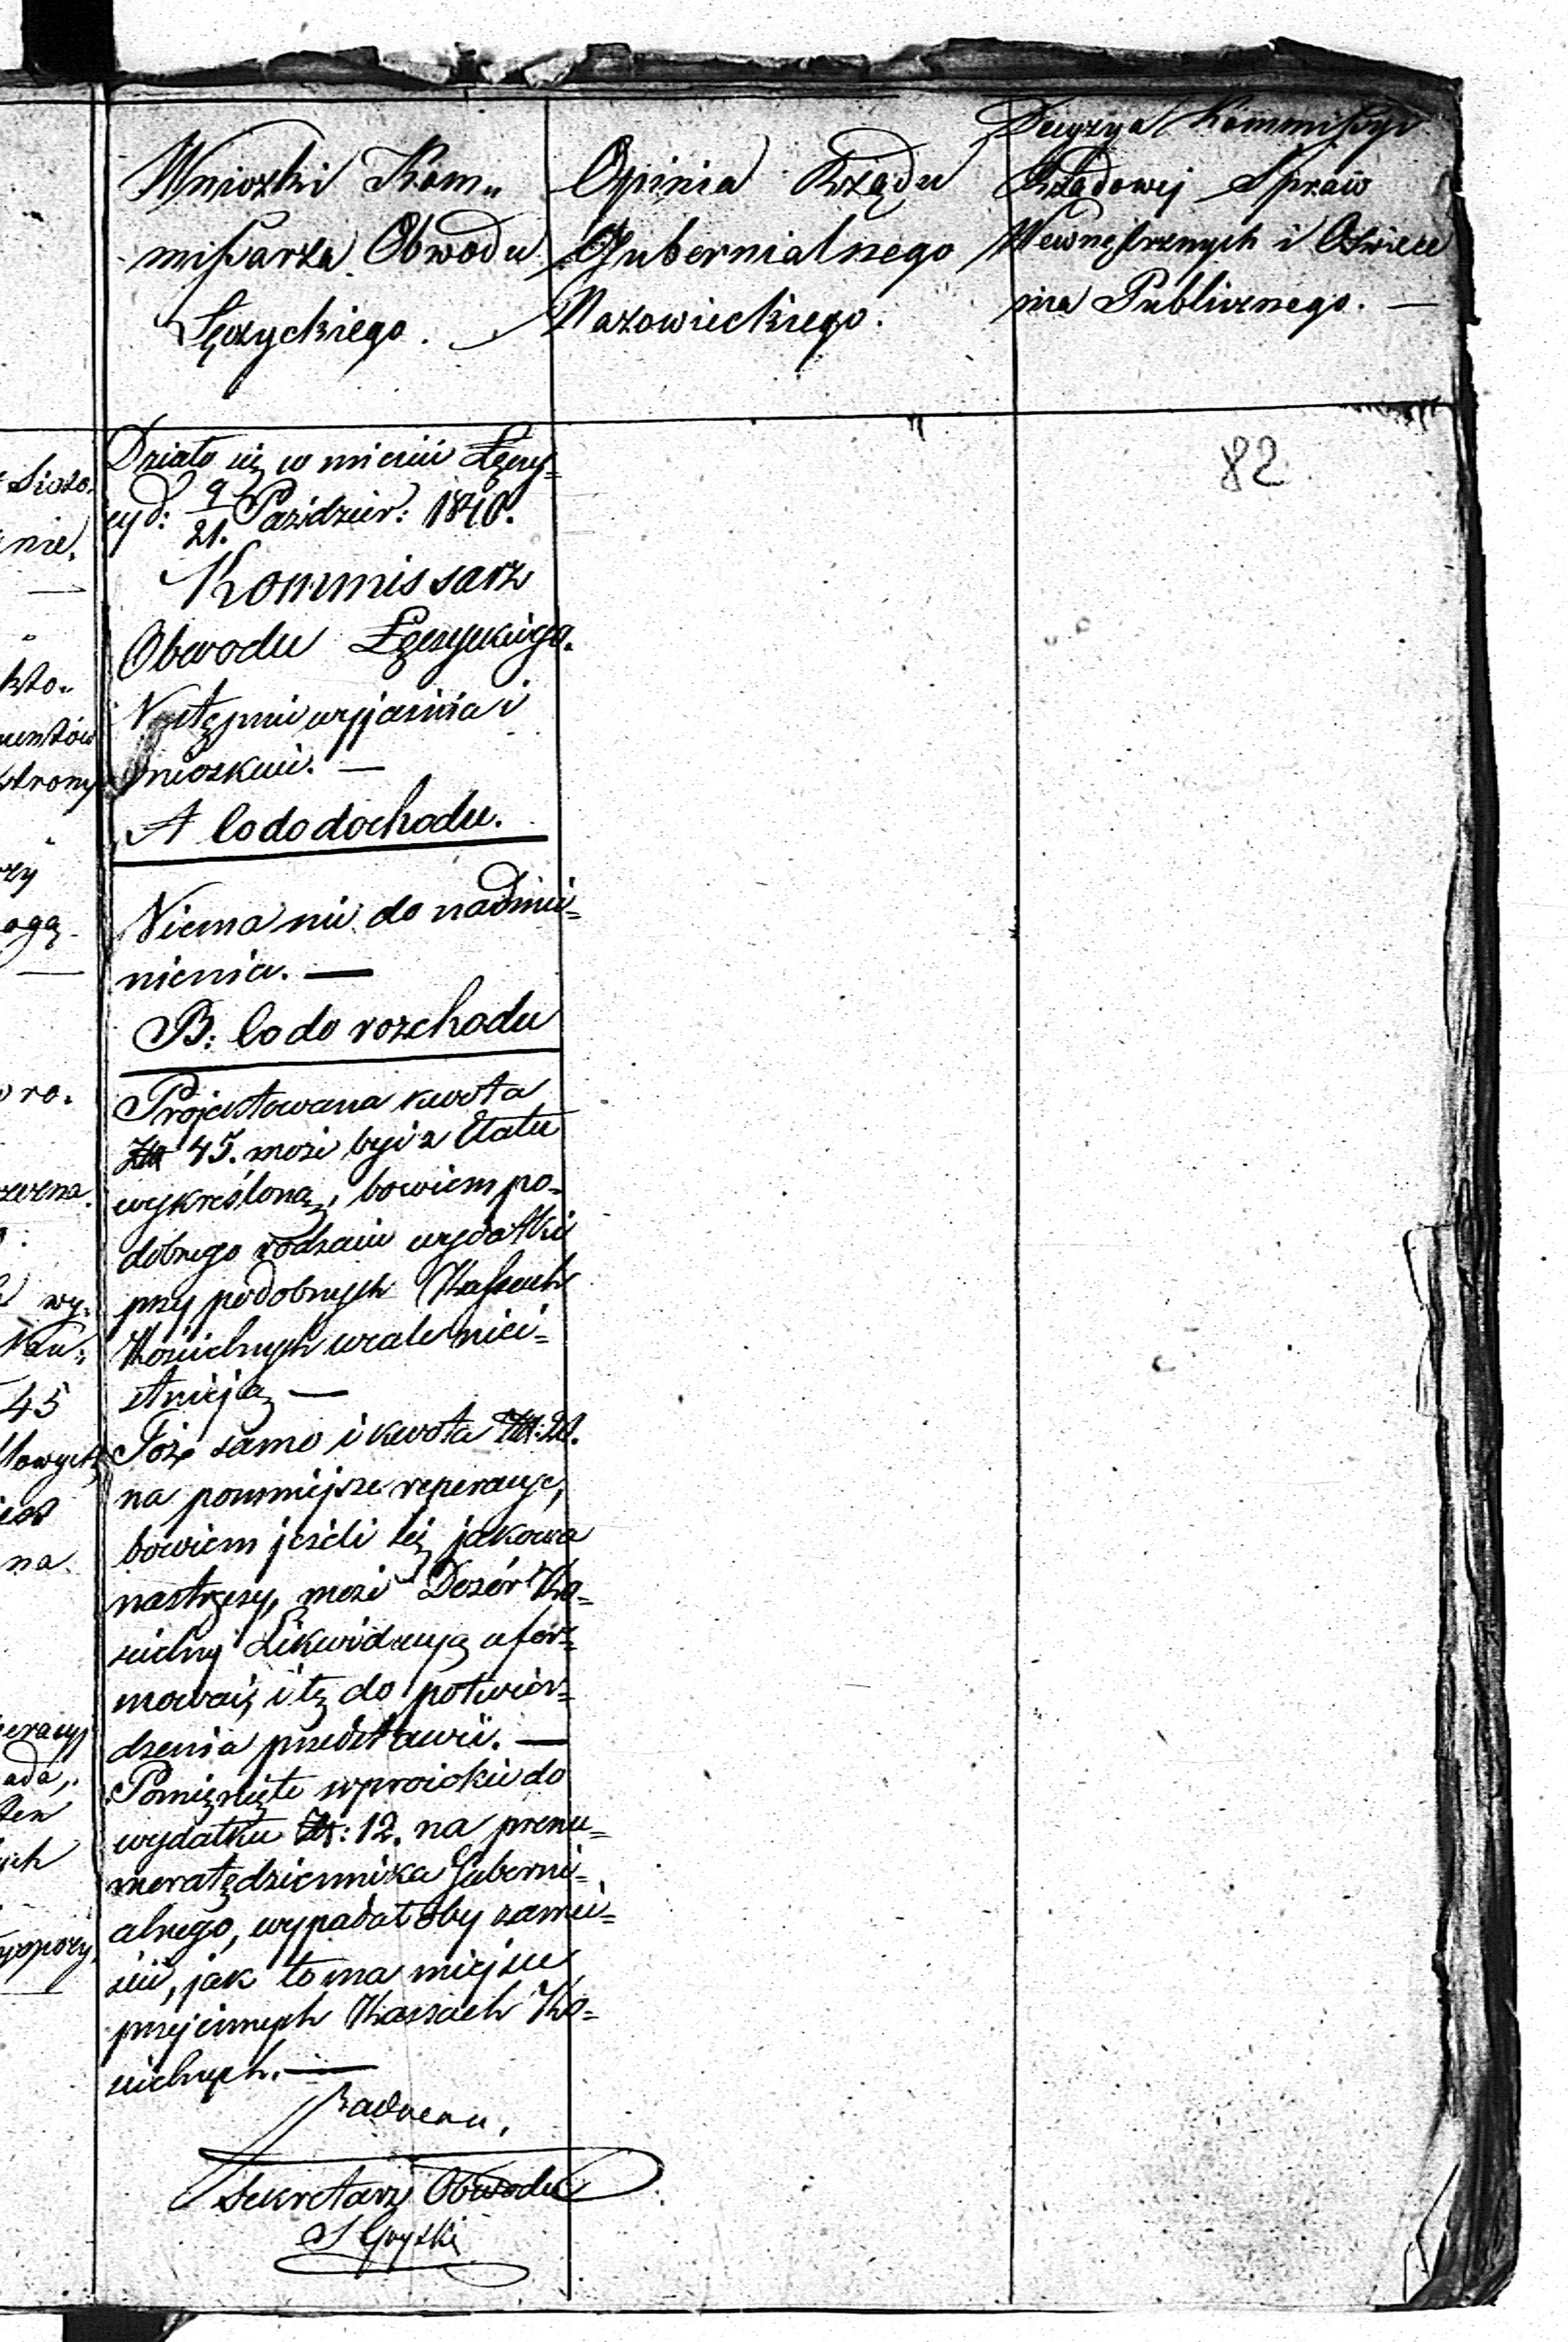 Wnioski Kom„
missarza Obwodu
Łęczyckiego.
Opinia Rządu
Gubernialnego
Mazowieckiego.
Decyzya Kommissyi
Rządowej Spraw
Wewnętrznych i Oświece
nia Publicznego. —
82
Działo się w mieście Łęczy=
cy d: 9/21. Paździer: 1840.
Kommissarz
Obwodu Łęczyckiego.
Następnie wyjaśnia i
wnioskuie. —
A Co do dochodu.
Niema nic do nadmie=
nienia. —
B: Co do rozchodu
Projektowana kwota
Złt 45. może być z Etatu
wykreśloną, bowiem po=
dobnego rodzaiu wydatki
przy podobnych Kassach
Kościelnych wcale niei=
stnieją —
Toż samo i kwota Złt: 20.
na pomniejsze reperacye,
bowiem jeżeli się jakowa
nastręczy, może Dozór Ko=
ścielny Likwidacyą ufor=
mować, i tę do potwier=
dzenia przedstawić. —
Pominięte w projekcie do
wydatku Zł: 12. na prenu=
meratę dziennika Guberni=
alnego, wypadałoby zamie=
ścić, jak to ma miejsce
przy innych Kassach Ko=
ścielnych. —
Sekretarz Obwodu
wy.
45
na